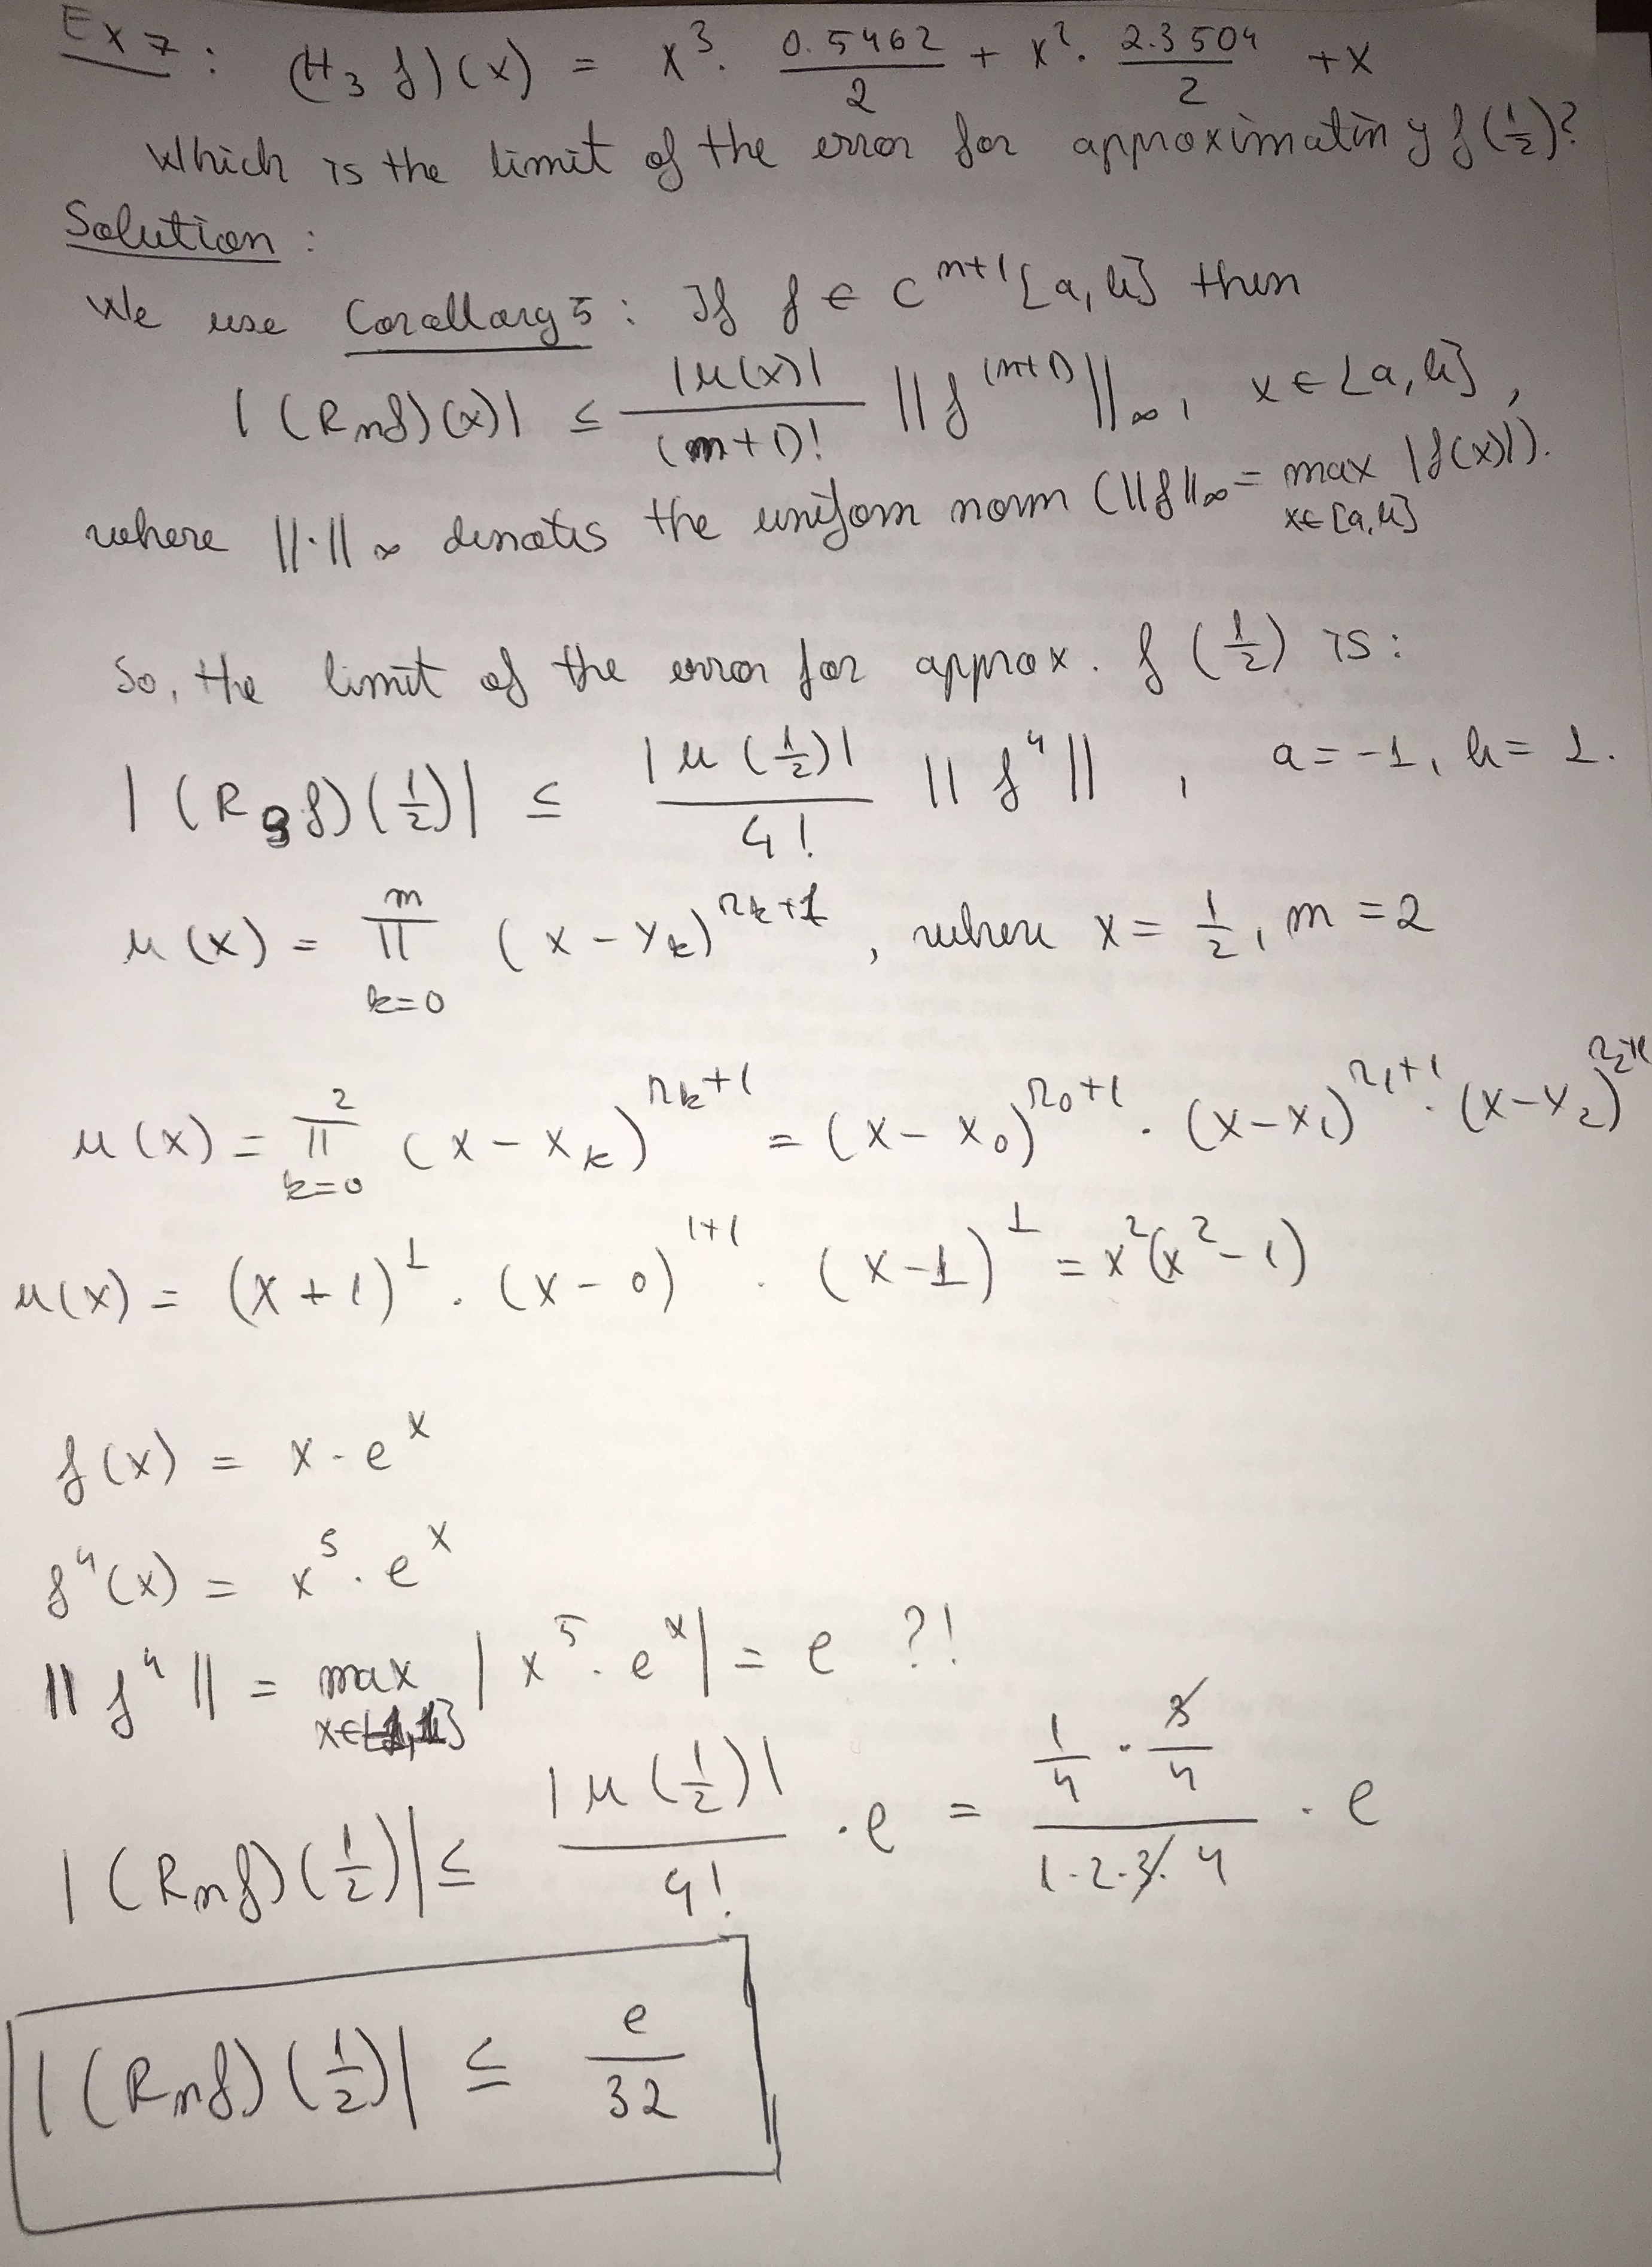 Ex 7: (H₃f)(x) = x³. 0.5462/2 + x². 2.3504/2 + x
Which is the limit of the error for approximating f(1/2)?
Solution:
We use Corollary 5: If f ∈ C^{m+1}[a,b] then
|(R_m f)(x)| ≤ |u(x)|/(m+1)! ||f^{(m+1)}||_∞, x ∈ [a,b],
where ||·||_∞ denotes the uniform norm (||f||_∞ = max_{x∈[a,b]} |f(x)|).
So, the limit of the error for approx. f(1/2) is:
|(R₃f)(1/2)| ≤ |u(1/2)|/4! ||f⁴||, a = -1, b = 1.
u(x) = ∏_{k=0}^{m} (x - x_k)^{r_k+1}, where x = 1/2, m = 2
u(x) = ∏_{k=0}^{2} (x - x_k)^{r_k+1} = (x - x₀)^{r₀+1} · (x - x₁)^{r₁+1} · (x - x₂)^{r₂+1}
u(x) = (x + 1)¹ · (x - 0)^{1+1} · (x - 1)¹ = x²(x² - 1)
f(x) = x · e^x
f⁴(x) = x⁵ · e^x
||f⁴|| = max_{x∈[-1,1]} |x⁵ · e^x| = e ?!
|(R_m f)(1/2)| ≤ |u(1/2)|/4! · e = (1/4 · 3/4)/(1·2·3·4) · e
|(R_m f)(1/2)| ≤ e/32